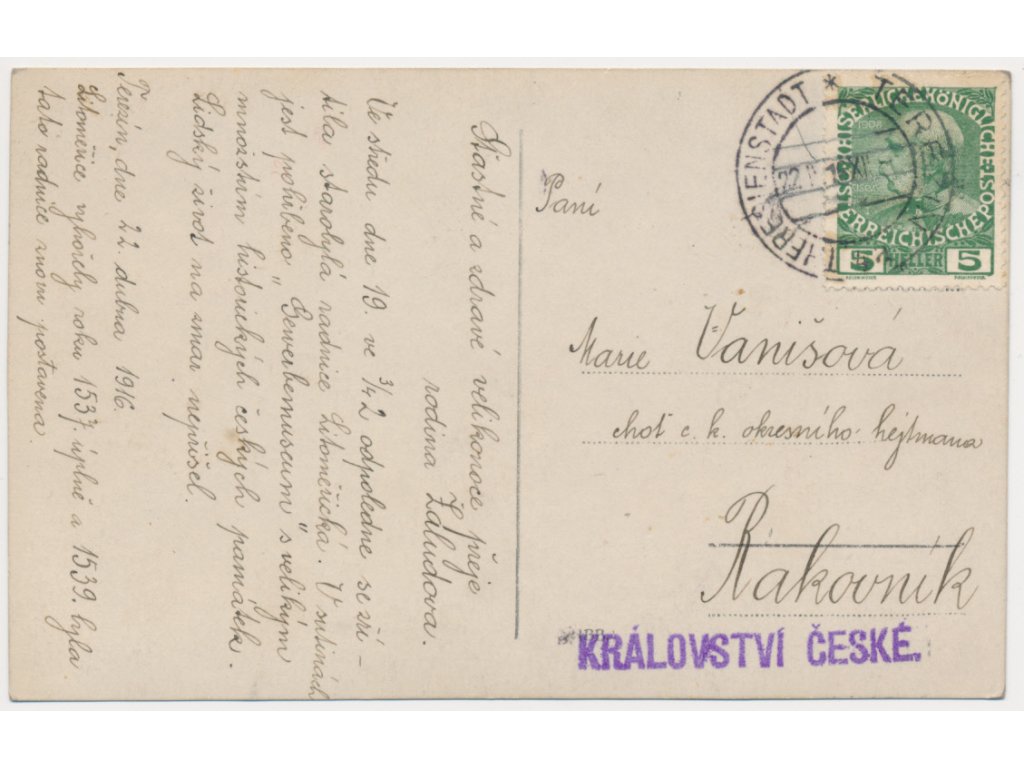 Šťastné a zdravé velikonoce přeje
rodina Žaludova.
Ve středu dne 19. ve 3/4 2 odpoledne se zří-
tila starobylá radnice Litoměřická. V sutinách
jest pohřbeno "Gewerbemuseum" s velikým
množstvím historických českých památek.
Lidský život na zmar nepřišel.
Terezín, dne 22. dubna 1916.
Litoměřice vyhořely roku 1537 úplně a 1539. byla
tato radnice znovu postavena.
THERESIENSTADT * TEREZÍN
22.IV.16 XII
KAISERLICHE KÖNIGLICHE POST
ÖSTERREICHISCHE
5 HELLER 5
Paní
Marie Vanišová
choť c. k. okresního hejtmana
Rakovník
KRÁLOVSTVÍ ČESKÉ.